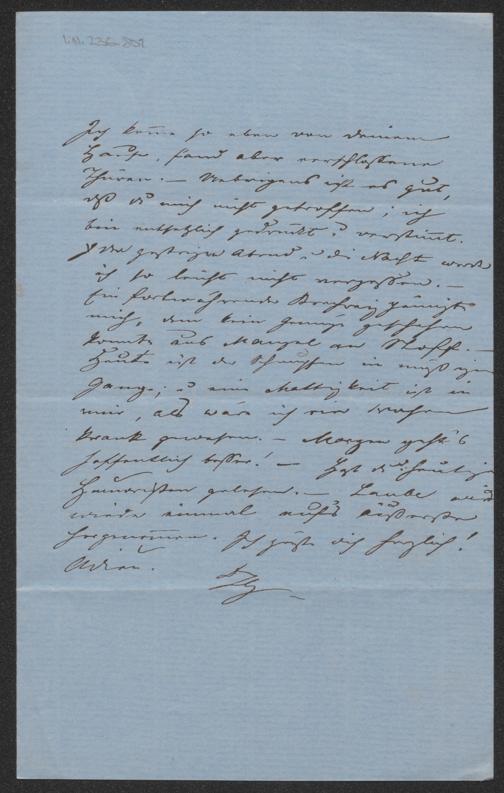 I.N. 236.801
Ich komme so eben von deinem
Hause, fand aber verschlossene
Thüren. — Uebrigens ist es gut,
daß du mich nicht getroffen; ich
bin entsetzlich gedrückt u verstimmt.
Den gestrigen Abend u die Nacht werde
ich so leicht nicht vergessen. —
Ein fortwährender Brechreiz peinigte
mich, dem kein Genüge geschehen
konnte aus Mangel an Stoff. —
Heute ist der Schnupfen in
Gang; u eine Mattigkeit ist in
mir, als wäre ich vier Wochen
krank gewesen. — Morgen geht's
hoffentlich besser! — Hast du
gelesen. — Laube wird
wieder einmal auf's äußerste
hergenommen. Ich grüße dich herzlich!
Adieu.